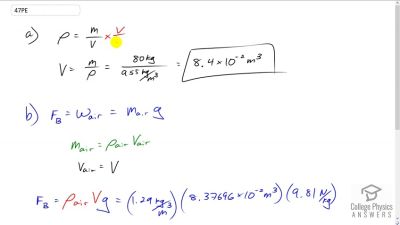 47PE
a) ρ = m/V × V/
V = m/ρ = 80 kg / 955 kg/m³ = 8.4 × 10⁻² m³
b) F_B = ω_air = m_air g
m_air = ρ_air V_air
V_air = V
F_B = ρ_air V g = (1.29 kg/m³) (8.37696 × 10⁻² m³) (9.81 N/kg)
College Physics
ANSWERS